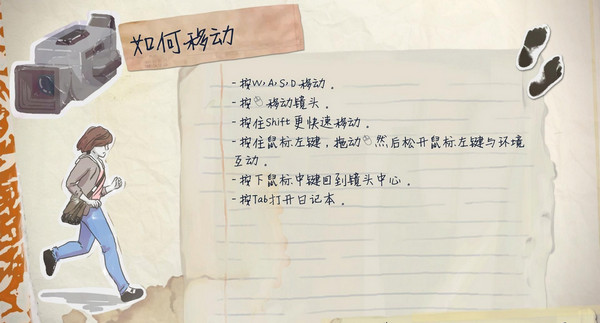 如何移动
-按W,A,S,D移动.
-按移动镜头.
-按住Shift更快速移动.
-按住鼠标左键,拖动然后松开鼠标左键与环境
互动.
-按下鼠标中键回到镜头中心.
-按Tab打开日记本.